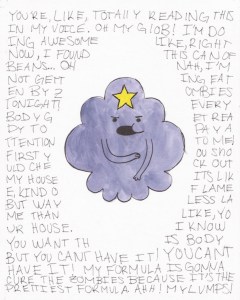 YOU'RE, LIKE, TOTALLY READING THIS
IN MY VOICE. OH MY GLOB! I'M DO
ING AWESOME LIKE, RIGHT
NOW, I FOUND THIS CAN OF
BEANS... OH NAH, I'M
NOT GETT ING EAT
EN BY Z OMBIES
TONIGHT! EVERY
BODY G ET REA
DY TO PAY A
TTENTION TO ME!
FIRST Y OU SHO
ULD CHE CK OUT
MY HOUSE ITS LIK
E, KINDO F LAME
BUT WAY LESS LA
ME THAN LIKE, YO
UR HOUSE. I KNOW
YOU WANT TH IS BODY
BUT YOU CANT HAVE IT! YOU CANT
HAVE IT! MY FORMULA IS GONNA
CURE THE ZOMBIES BECAUSE IT'S THE
PRETTIEST FORMULA AHH! MY LUMPS!